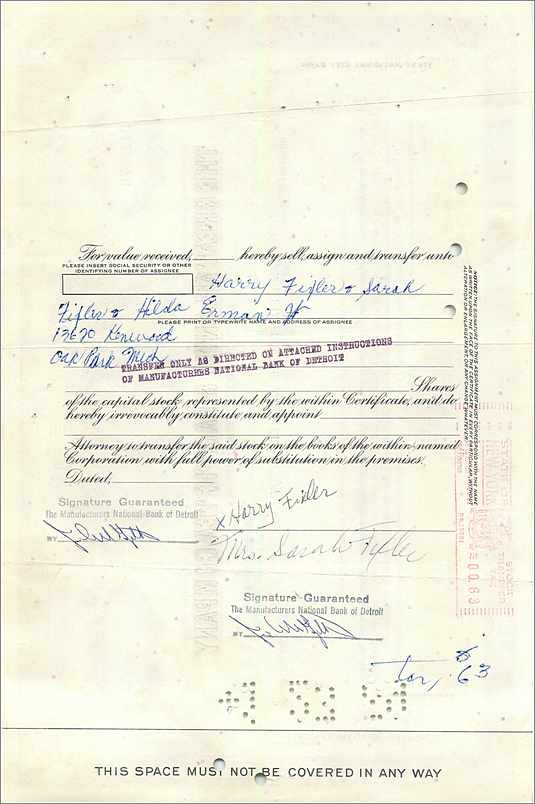 For value received, hereby sell, assign and transfer unto
PLEASE INSERT SOCIAL SECURITY OR OTHER
IDENTIFYING NUMBER OF ASSIGNEE
Harry Fixler & Sarah
Fixler & Hilda Erman
PLEASE PRINT OR TYPEWRITE NAME AND ADDRESS OF ASSIGNEE
Kenwood
Oak Park Mich
TRANSFER ONLY AS DIRECTED ON ATTACHED INSTRUCTIONS
OF MANUFACTURERS NATIONAL BANK OF DETROIT
Shares
of the capital stock represented by the within Certificate, and do
hereby irrevocably constitute and appoint
Attorney to transfer the said stock on the books of the within-named
Corporation with full power of substitution in the premises.
Dated,
Signature Guaranteed
The Manufacturers National Bank of Detroit
BY
x Harry Fixler
Mrs. Sarah Fixler
Signature Guaranteed
The Manufacturers National Bank of Detroit
BY
63
NOTICE: THE SIGNATURE TO THIS ASSIGNMENT MUST CORRESPOND WITH THE NAME
AS WRITTEN UPON THE FACE OF THE CERTIFICATE IN EVERY PARTICULAR, WITHOUT
ALTERATION OR ENLARGEMENT OR ANY CHANGE WHATEVER.
THIS SPACE MUST NOT BE COVERED IN ANY WAY